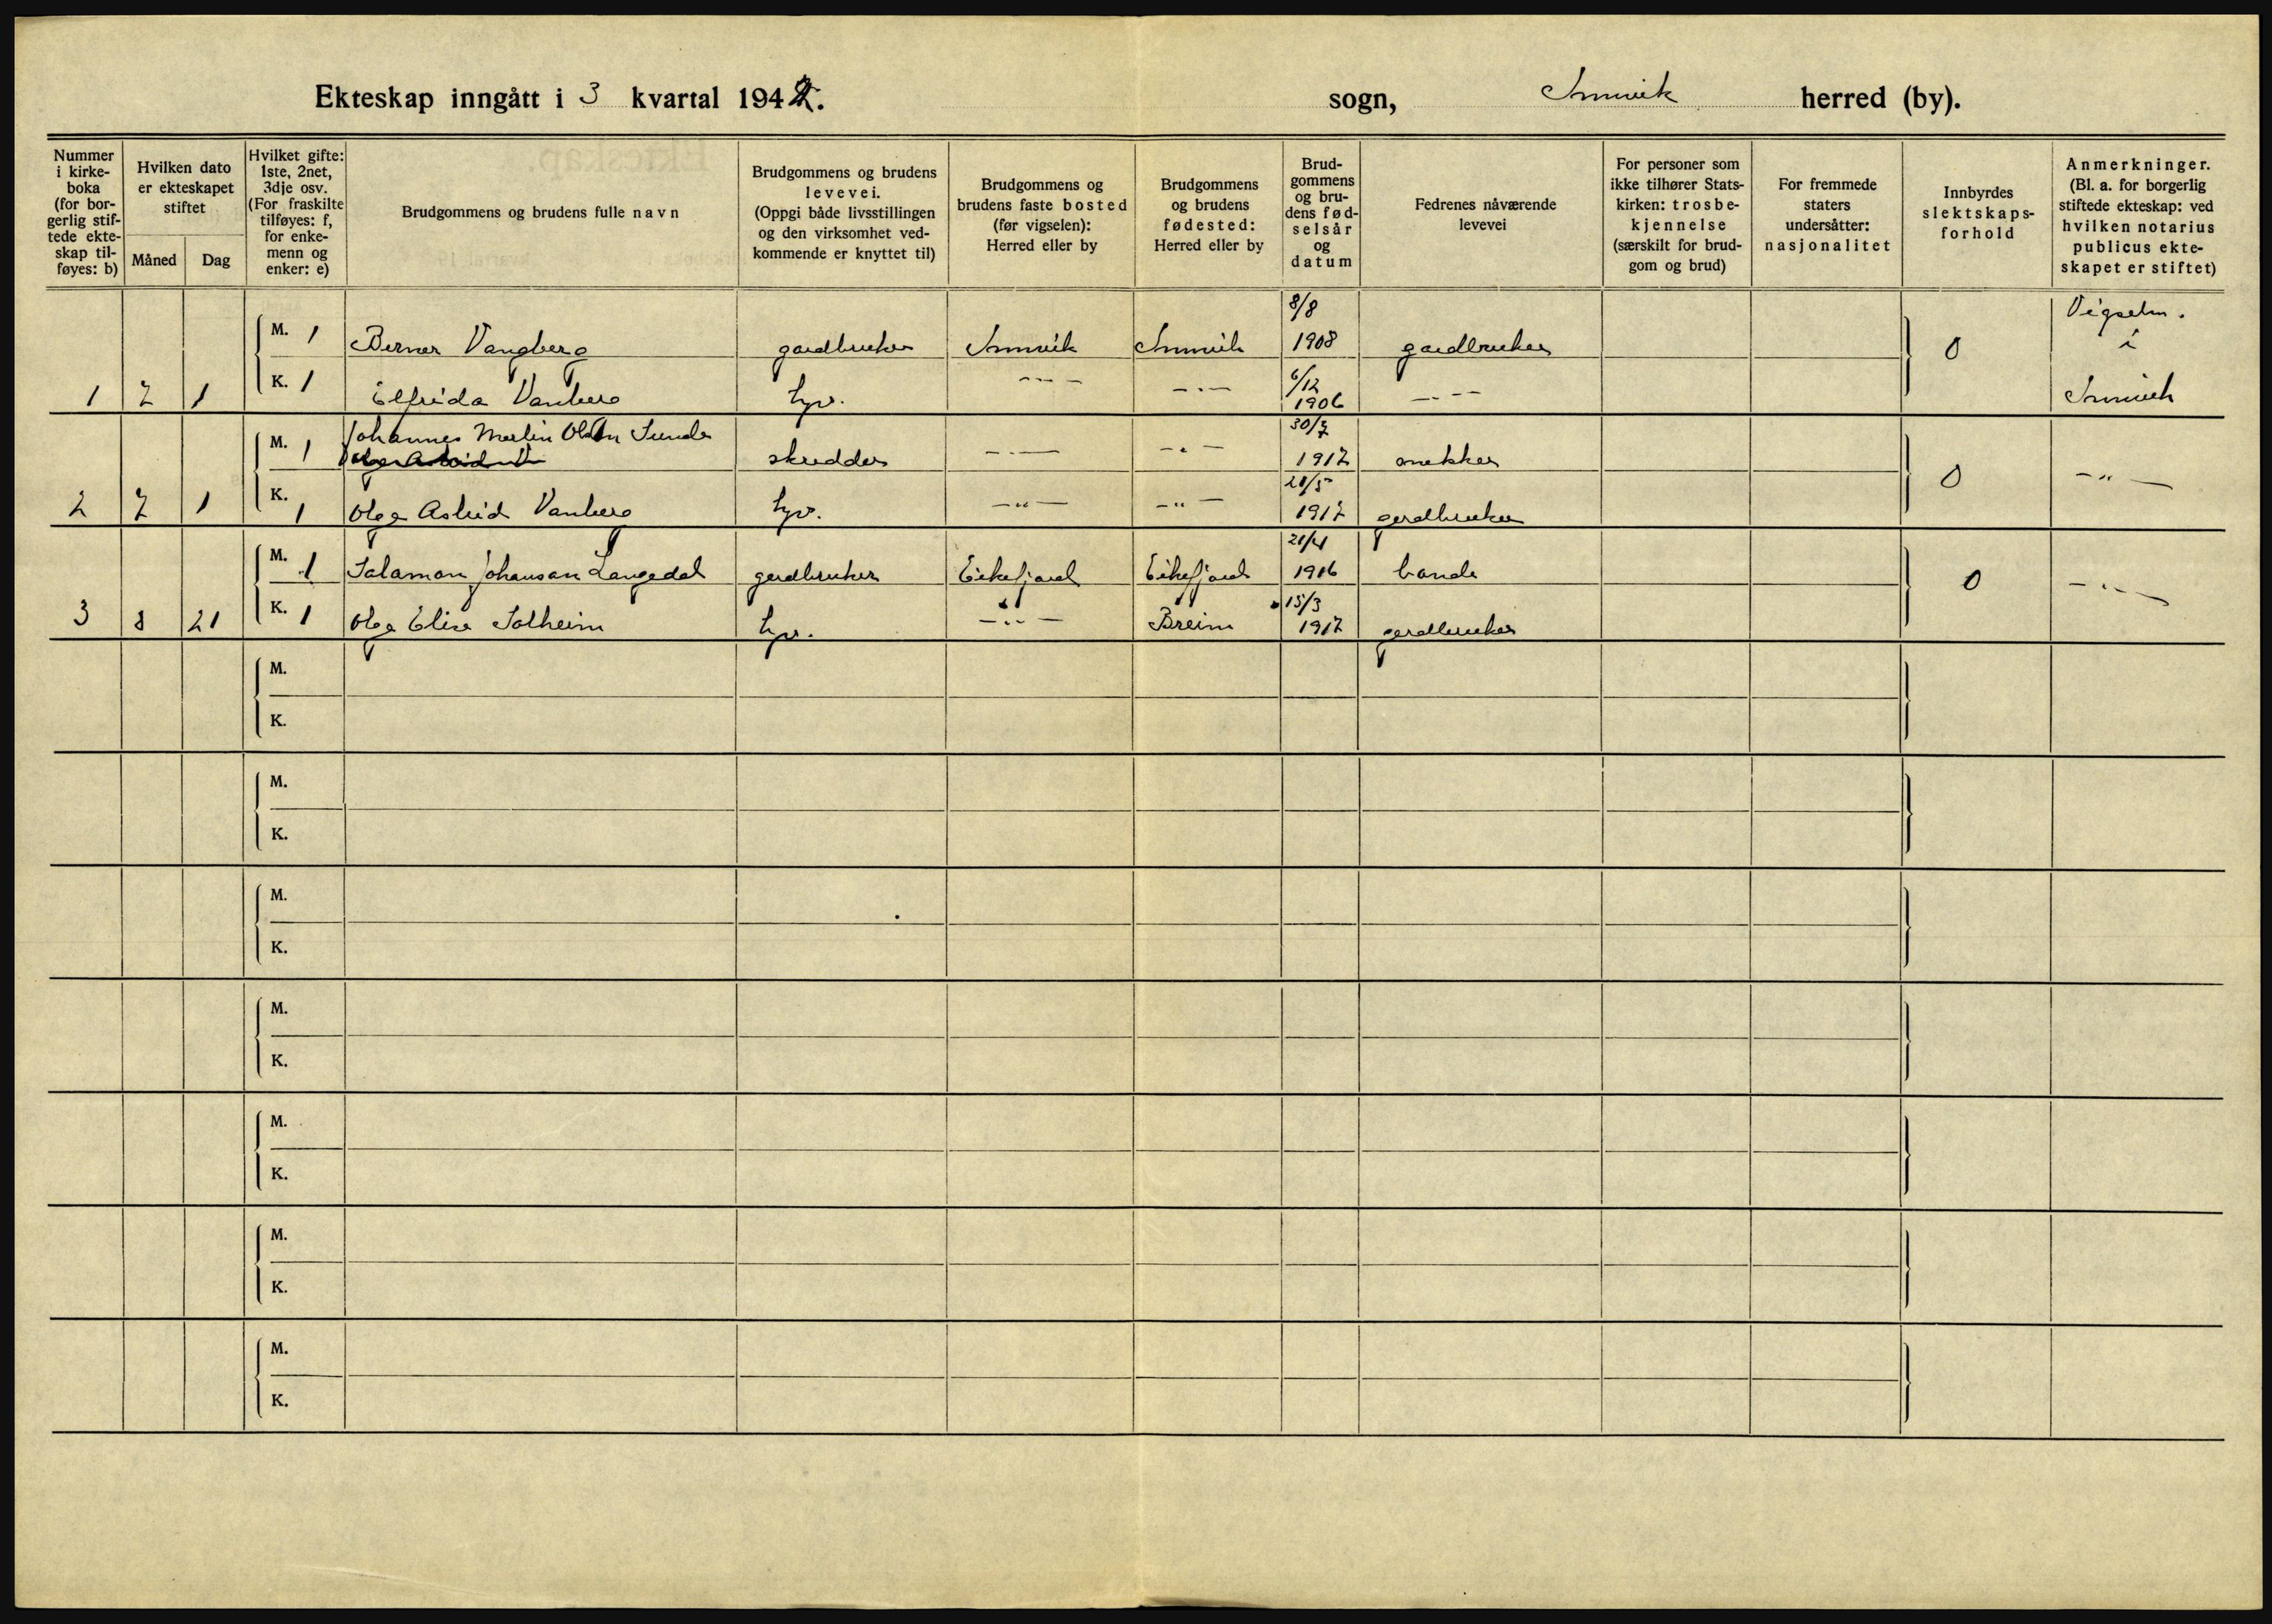 Ekteskap inngått i 3 kvartal 1942. sogn, Innvik herred (by).
Nummer i kirke- boka (for bor- gerlig stif- tede ekte- skap til- føyes: b)
Hvilken dato er ekteskapet stiftet
Måned Dag
Hvilket gifte: 1ste, 2net, 3dje osv. (For fraskilte tilføyes: f, for enke- menn og enker: e)
Brudgommens og brudens fulle navn
Brudgommens og brudens levevei. (Oppgi både livsstillingen og den virksomhet ved- kommende er knyttet til)
Brudgommens og brudens faste bosted (før vigselen): Herred eller by
Brudgommens og brudens fødested: Herred eller by
Brud- gommens og bru- dens fød- selsår og datum
Fedrenes nåværende levevei
For personer som ikke tilhører Stats- kirken: trosbe- kjennelse (særskilt for brud- gom og brud)
For fremmede staters undersåtter: nasjonalitet
Innbyrdes slektskaps- forhold
Anmerkninger. (Bl. a. for borgerlig stiftede ekteskap: ved hvilken notarius publicus ekte- skapet er stiftet)
M. 1 Berner Vangberg gardbruker Innvik Innvik 8/8 1908 gardbruker 0 Vigselm. i Innvik
1 7 1 K. 1 Elfrida Vanberg hyr. -"- -"- 6/12 1906 -"-
M. 1 Johannes Martin Olsen Sunde skredder -"- -"- 30/7 1917 snekker 0 -"-
2 7 1 K. 1 Olga Astrid Vanberg hyr. -"- -"- 21/5 1917 gardbruker
M. 1 Salamon Johansen Langedal gardbruker Eikefjord Eikefjord 21/4 1916 bonde 0 -"-
3 8 21 K. 1 Olga Elise Solheim hyr. -"- Breim 15/3 1917 gardbruker
M.
K.
M.
K.
M.
K.
M.
K.
M.
K.
M.
K.
M.
K.